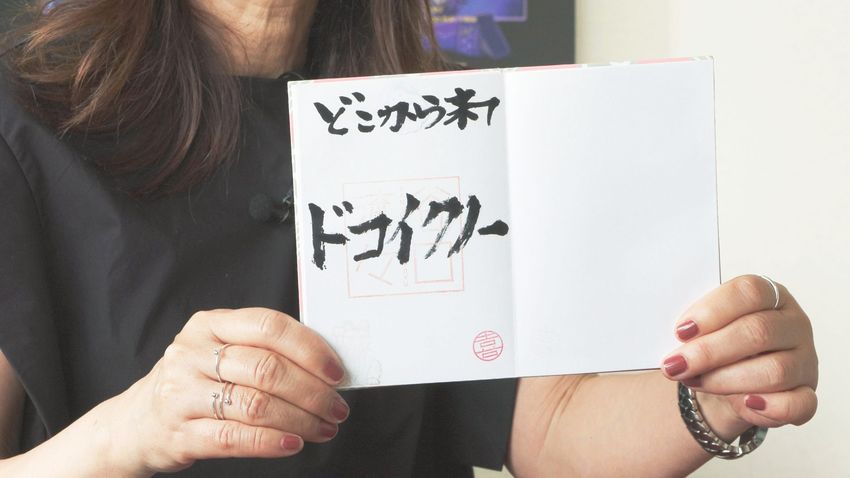 どこから来
ドコイクノー
吉